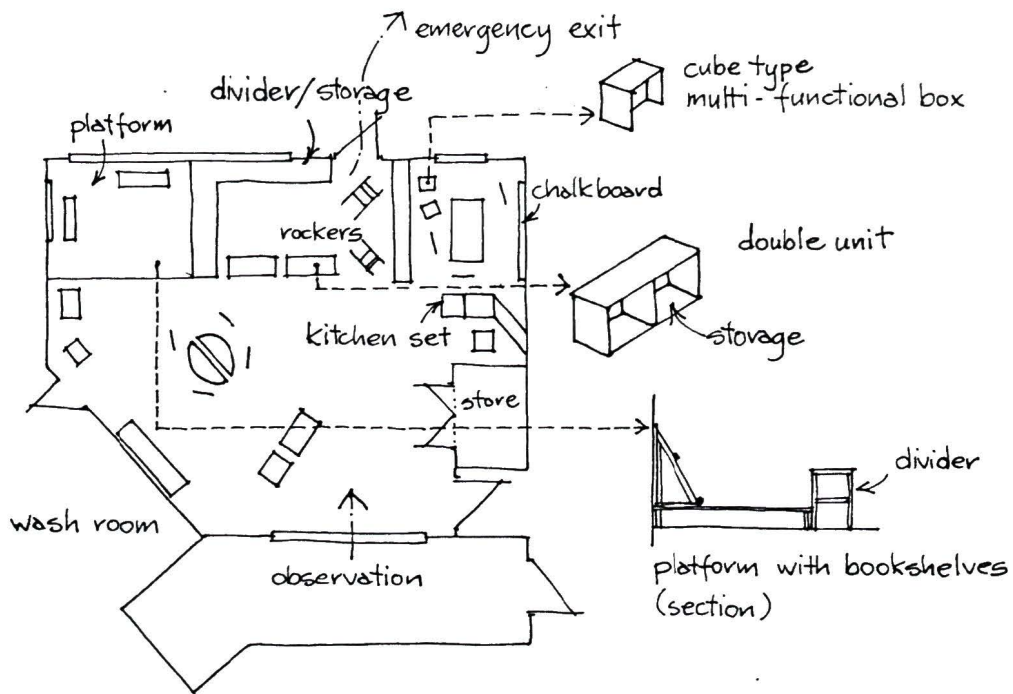 emergency exit
cube type
multi-functional box
divider/storage
platform
chalkboard
rockers
double unit
kitchen set
storage
store
divider
wash room
observation
platform with bookshelves
(section)